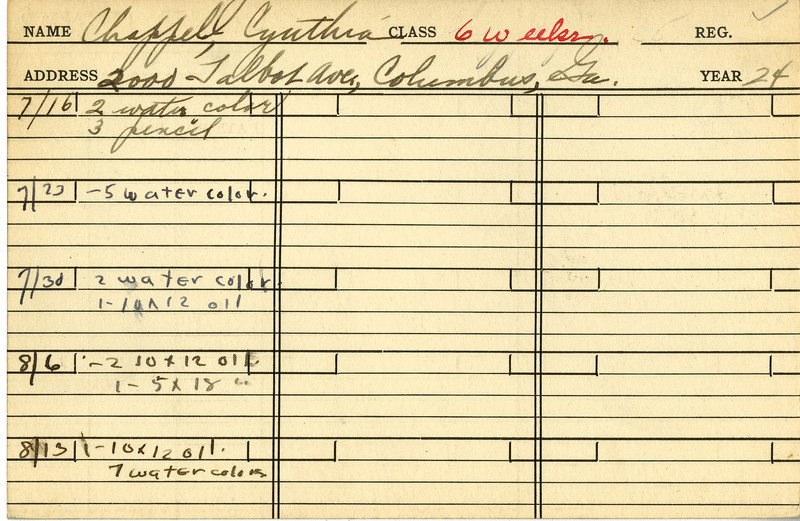 NAME Chappell, Cynthia CLASS 6 weeks. REG.
ADDRESS 2000 Talbot Ave, Columbus, Ga. YEAR 24
7/16 2 water color
3 pencil
7/23 -5 water color.
7/30 2 water color.
1-10x12 oil
8/6 -2 10x12 oil
1-5x18 "
8/13 1-10x12 oil.
7 water colors